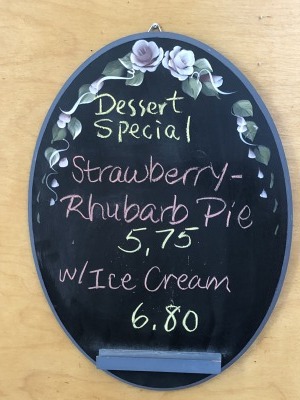 Dessert
Special
Strawberry-
Rhubarb Pie
5,75
w/Ice Cream
6.80